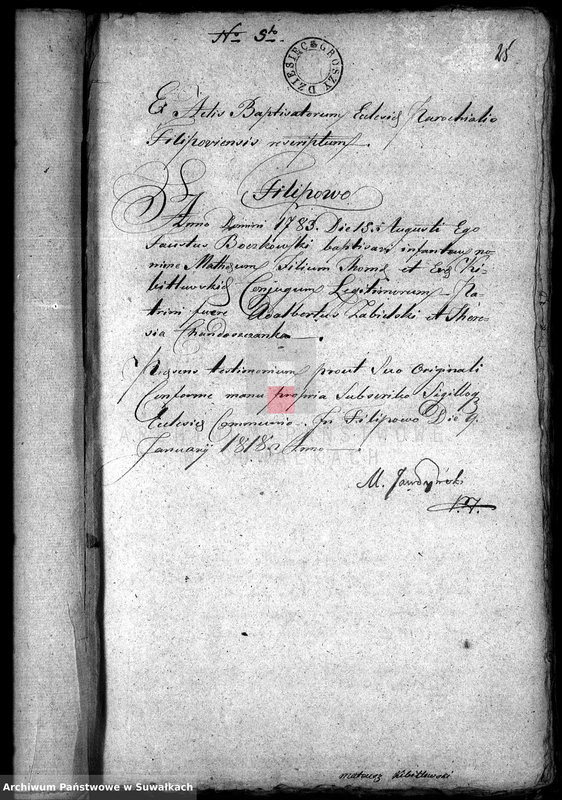 No 5to.
25
DZIESIĘC GROSZY
Ex Actis Baptisatorum Ecclesiæ Parochialis
Filipoviensis rescriptum.
Filipowo
Anno Domini 1783. Die 18. Augusti Ego
Faustus Boczkowski baptisavi infantem no-
mine Matheum Filium Thomæ et Evæ Ki-
bittlewskich Conjugum Legitimorum. Pa-
trini fuere Adalbertus Zabielski et There-
sia
Præsens testimonium prout Suo Originali
Conforme manu propria Subscribo Sigilloq
Ecclesiæ Communio. In Filipowo Die 9.
January 1818 Anno
ARCHIWUM PAŃSTWOWE
W SUWAŁKACH
M.
mateusz Kibitlewski
Archiwum Państwowe w Suwałkach